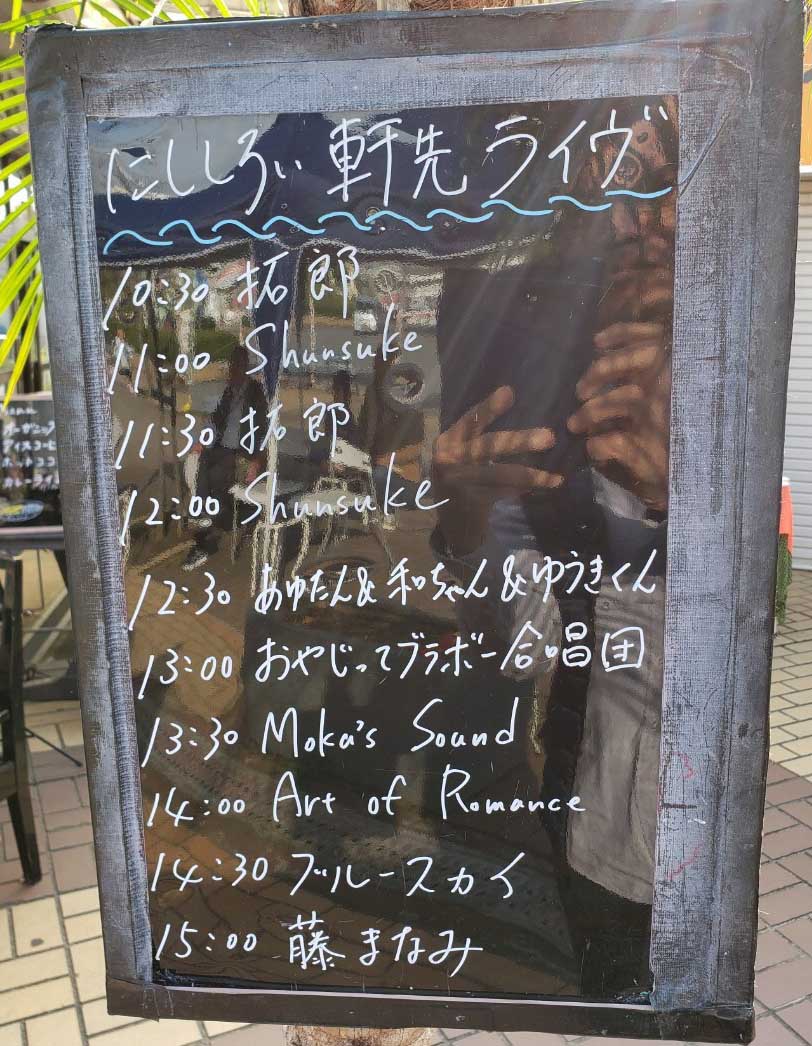 にししろい 軒先 ライヴ
10:30 拓郎
11:00 Shunsuke
11:30 拓郎
12:00 Shunsuke
12:30 あゆたん&和ちゃん&ゆうきくん
13:00 おやじってブラボー合唱団
13:30 Moka's Sound
14:00 Art of Romance
14:30 ブルースカイ
15:00 藤まなみ